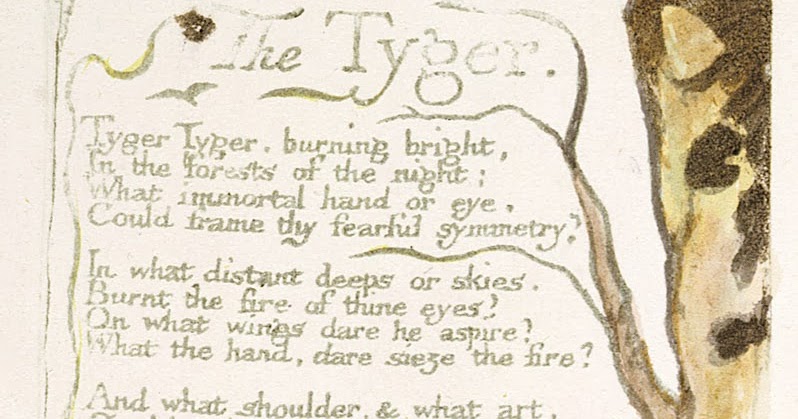 The Tyger.
Tyger Tyger. burning bright,
In the forests of the night;
What immortal hand or eye.
Could frame thy fearful symmetry?
In what distant deeps or skies.
Burnt the fire of thine eyes?
On what wings dare he aspire?
What the hand, dare sieze the fire?
And what shoulder, & what art,